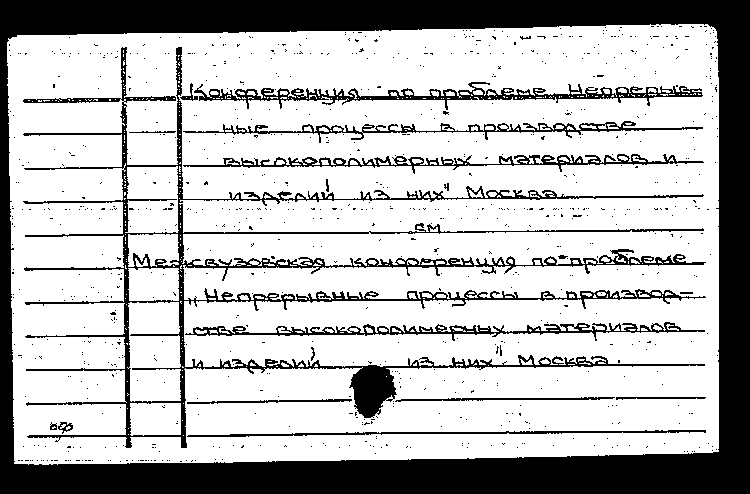 Конференция по проблеме „Непрерыв-
ные процессы в производстве
высокополимерных материалов и
изделий из них" Москва.
см
Межвузовская конференция по проблеме
„Непрерывные процессы в производ-
стве высокополимерных материалов
и изделий из них" Москва.